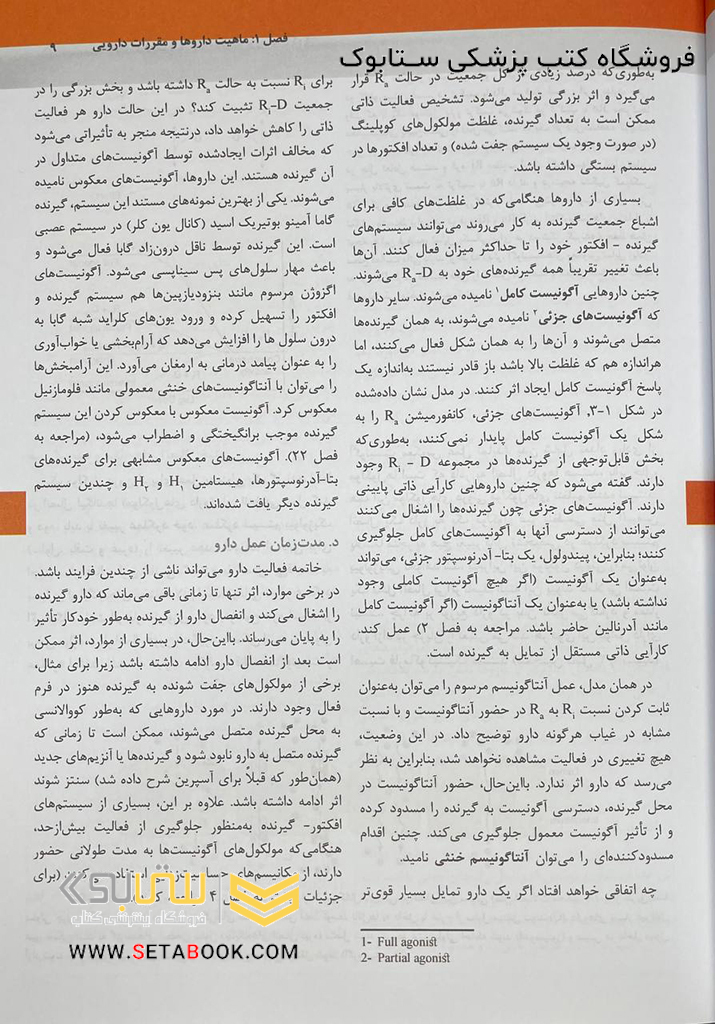 فصل ۱: ماهیت داروها و مقررات دارویی ۹
فروشگاه کتب پزشکی ستابوک
به‌طوری‌که درصد زیادی از کل جمعیت در حالت Ra قرار
می‌گیرد و اثر بزرگی تولید می‌شود. تشخیص فعالیت ذاتی
ممکن است به تعداد گیرنده، غلظت مولکول‌های کوپلینگ
(در صورت وجود یک سیستم جفت شده) و تعداد افکتورها در
سیستم بستگی داشته باشد.
بسیاری از داروها هنگامی‌که در غلظت‌های کافی برای
اشباع جمعیت گیرنده به کار می‌روند می‌توانند سیستم‌های
گیرنده - افکتور خود را تا حداکثر میزان فعال کنند. آن‌ها
باعث تغییر تقریباً همه گیرنده‌های خود به Ra-D می‌شوند.
چنین داروهایی آگونیست کامل۱ نامیده می‌شوند. سایر داروها
که آگونیست‌های جزئی۲ نامیده می‌شوند، به همان گیرنده‌ها
متصل می‌شوند و آن‌ها را به همان شکل فعال می‌کنند، اما
هراندازه هم که غلظت بالا باشد باز قادر نیستند به‌اندازه یک
پاسخ آگونیست کامل ایجاد اثر کنند. در مدل نشان داده‌شده
در شکل ۱-۳، آگونیست‌های جزئی، کانفورمیشن Ra را به
شکل یک آگونیست کامل پایدار نمی‌کنند، به‌طوری‌که
بخش قابل‌توجهی از گیرنده‌ها در مجموعه Ri - D وجود
دارند. گفته می‌شود که چنین داروهایی کارآیی ذاتی پایینی
دارند. آگونیست‌های جزئی چون گیرنده‌ها را اشغال می‌کنند
می‌توانند از دسترسی آنها به آگونیست‌های کامل جلوگیری
کنند؛ بنابراین، پیندولول، یک بتا- آدرنوسپتور جزئی، می‌تواند
به‌عنوان یک آگونیست (اگر هیچ آگونیست کاملی وجود
نداشته باشد) یا به‌عنوان یک آنتاگونیست (اگر آگونیست کامل
مانند آدرنالین حاضر باشد. مراجعه به فصل ۲) عمل کند.
کارآیی ذاتی مستقل از تمایل به گیرنده است.
در همان مدل، عمل آنتاگونیسم مرسوم را می‌توان به‌عنوان
ثابت کردن نسبت Ri به Ra در حضور آنتاگونیست و با نسبت
مشابه در غیاب هرگونه دارو توضیح داد. در این وضعیت،
هیچ تغییری در فعالیت مشاهده نخواهد شد، بنابراین به نظر
می‌رسد که دارو اثر ندارد. بااین‌حال، حضور آنتاگونیست در
محل گیرنده، دسترسی آگونیست به گیرنده را مسدود کرده
و از تأثیر آگونیست معمول جلوگیری می‌کند. چنین اقدام
مسدودکننده‌ای را می‌توان آنتاگونیسم خنثی نامید.
چه اتفاقی خواهد افتاد اگر یک دارو تمایل بسیار قوی‌تر
1- Full agonist
2- Partial agonist
برای Ri نسبت به حالت Ra داشته باشد و بخش بزرگی را در
جمعیت Ri-D تثبیت کند؟ در این حالت دارو هر فعالیت
ذاتی را کاهش خواهد داد، درنتیجه منجر به تأثیراتی می‌شود
که مخالف اثرات ایجادشده توسط آگونیست‌های متداول در
آن گیرنده هستند. این داروها، آگونیست‌های معکوس نامیده
می‌شوند. یکی از بهترین نمونه‌های مستند این سیستم، گیرنده
گاما آمینو بوتیریک اسید (کانال یون کلر) در سیستم عصبی
است. این گیرنده توسط ناقل درون‌زاد گابا فعال می‌شود و
باعث مهار سلول‌های پس سیناپسی می‌شود. آگونیست‌های
اگزوژن مرسوم مانند بنزودیازپین‌ها هم سیستم گیرنده و
افکتور را تسهیل کرده و ورود یون‌های کلراید شبه گابا به
درون سلول ها را افزایش می‌دهد که آرام‌بخشی یا خواب‌آوری
را به عنوان پیامد درمانی به ارمغان می‌آورد. این آرامبخش‌ها
را می‌توان با آنتاگونیست‌های خنثی معمولی مانند فلومازنیل
معکوس کرد. آگونیست معکوس با معکوس کردن این سیستم
گیرنده موجب برانگیختگی و اضطراب می‌شود، (مراجعه به
فصل ۲۲). آگونیست‌های معکوس مشابهی برای گیرنده‌های
بتا-آدرنوسپتورها، هیستامین H۱ و H۲ و چندین سیستم
گیرنده دیگر یافت شده‌اند.
د. مدت‌زمان عمل دارو
خاتمه فعالیت دارو می‌تواند ناشی از چندین فرایند باشد.
در برخی موارد، اثر تنها تا زمانی باقی می‌ماند که دارو گیرنده
را اشغال می‌کند و انفصال دارو از گیرنده به‌طور خودکار تأثیر
را به پایان می‌رساند. بااین‌حال، در بسیاری از موارد، اثر ممکن
است بعد از انفصال دارو ادامه داشته باشد زیرا برای مثال،
برخی از مولکول‌های جفت شونده به گیرنده هنوز در فرم
فعال وجود دارند. در مورد داروهایی که به‌طور کووالانسی
به محل گیرنده متصل می‌شوند، ممکن است تا زمانی که
گیرنده متصل به دارو نابود شود و گیرنده‌ها یا آنزیم‌های جدید
(همان‌طور که قبلاً برای آسپرین شرح داده شد) سنتز شوند
اثر ادامه داشته باشد. علاوه بر این، بسیاری از سیستم‌های
افکتور- گیرنده به‌منظور جلوگیری از فعالیت بیش‌ازحد،
هنگامی‌که مولکول‌های آگونیست‌ها به مدت طولانی حضور
دارند، از مکانیسم‌های (برای
جزئیات
ستابوک
فروشگاه اینترنتی کتاب
WWW.SETABOOK.COM